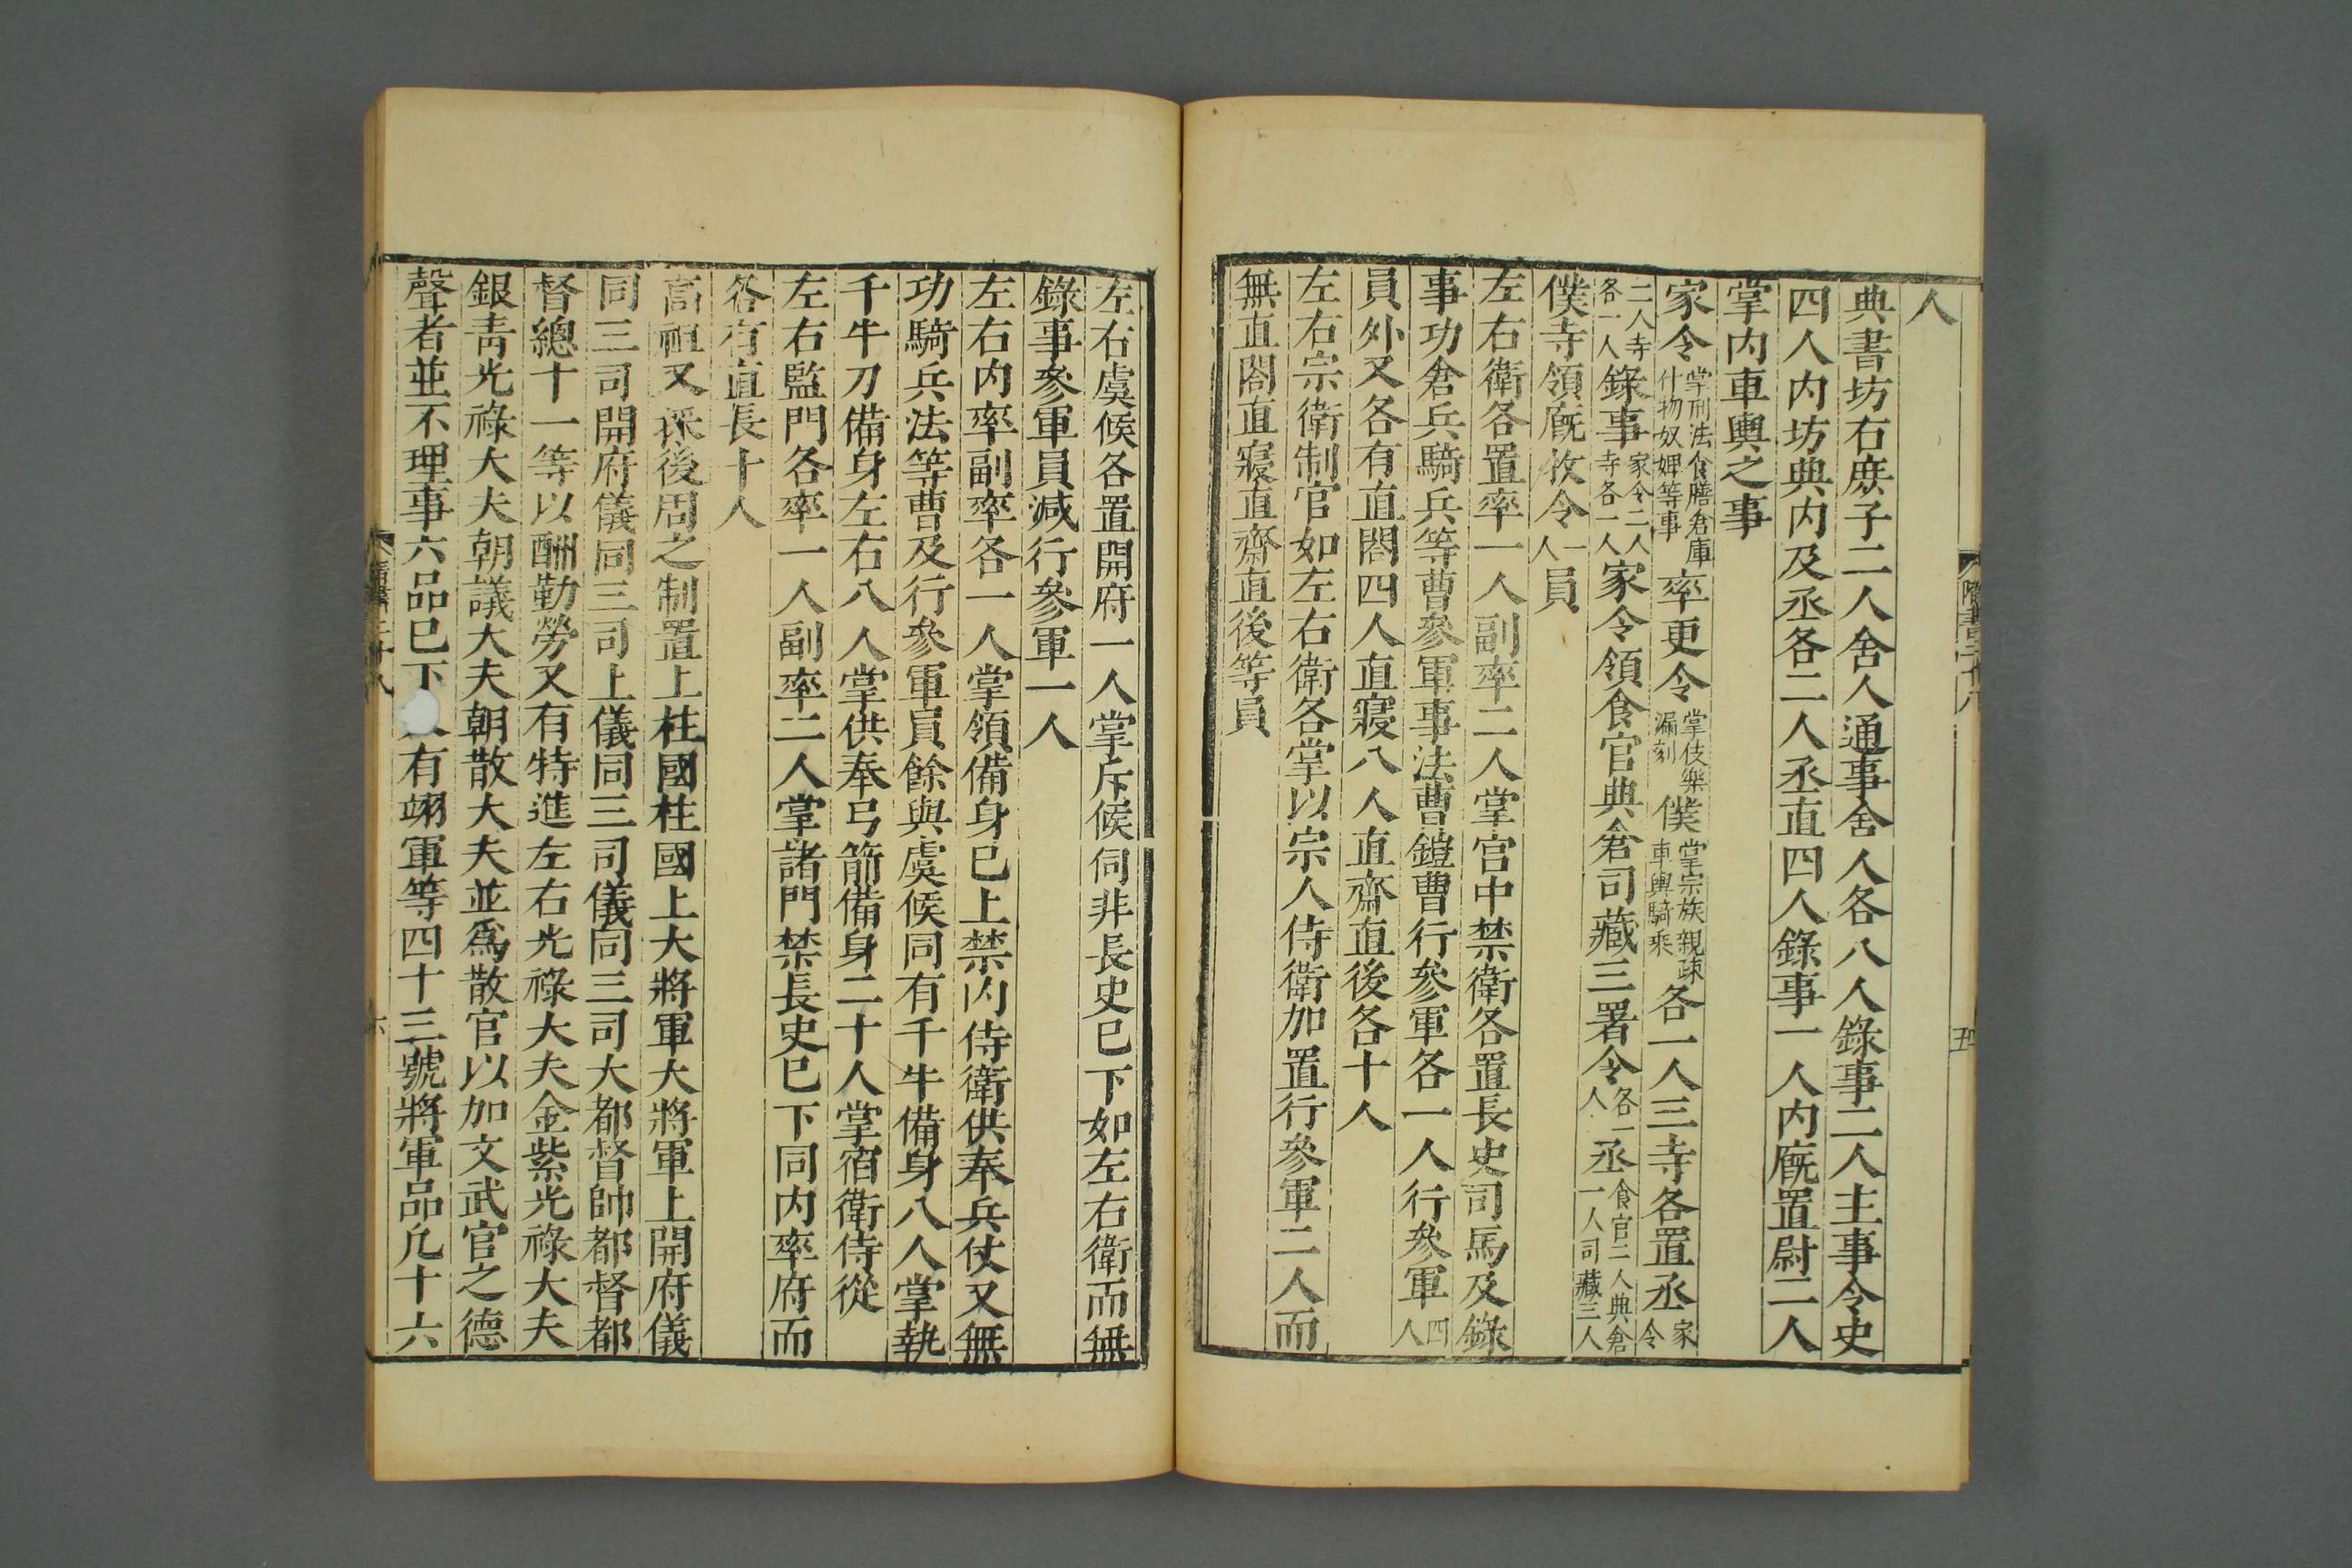 人
典書坊右庶子二人舍人通事舍人各八人錄事二人主事令史
四人内坊典内及丞各二人丞直四人錄事一人内廐置尉二人
掌内車輿之事
家令掌刑法食膳倉庫什物奴婢等事率更令掌伎樂漏刻僕掌宗族親疎車輿騎乘各一人三寺各置丞家令
二人寺各一人錄事家令二人寺各一人家令領食官典倉司藏三署令各一人丞食官二人典倉一人司藏三人
僕寺領廐牧令一人員
左右衛各置率一人副率二人掌宫中禁衛各置長史司馬及錄
事功倉兵騎兵等曹參軍事法曹鎧曹行參軍各一人行參軍四人
員外又各有直閤四人直寢八人直齋直後各十人
左右宗衛制官如左右衛各掌以宗人侍衛加置行參軍二人而
無直閤直寢直齋直後等員
隋書二十八
五
左右虞候各置開府一人掌斥候伺非長史已下如左右衛而無
錄事參軍員減行參軍一人
左右内率副率各一人掌領備身已上禁内侍衛供奉兵仗又無
功騎兵法等曹及行參軍員餘與虞候同有千牛備身八人掌執
千牛刀備身左右八人掌供奉弓箭備身二十人掌宿衛侍從
左右監門各率一人副率二人掌諸門禁長史已下同内率府而
各有直長十人
高祖又採後周之制置上柱國柱國上大將軍大將軍上開府儀
同三司開府儀同三司上儀同三司儀同三司大都督帥都督都
督總十一等以酬勤勞又有特進左右光祿大夫金紫光祿大夫
銀青光祿大夫朝議大夫朝散大夫並爲散官以加文武官之德
聲者並不理事六品已下有翊軍等四十三號將軍品凡十六
隋書二十八
六